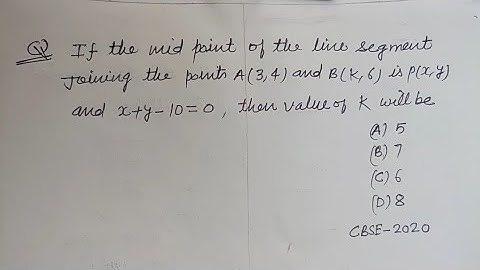 Q If the mid point of the line segment
Joining the points A(3,4) and B(K,6) is P(x,y)
and x+y-10=0, then value of K will be
(A) 5
(B) 7
(C) 6
(D) 8
CBSE-2020